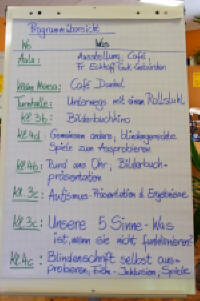 Programmübersicht
Wo Was
Aula: Ausstellung, Café,
Fr. Eckhoff
Kleine Mensa: Café Dunkel
Turnhalle: Unterwegs mit einem Rollstuhl
Kl. 3b: Bilderbuchkino
Kl. 4d: Gemeinsam anders, blindengerechte
Spiele zum Ausprobieren
Kl. 4b: Rund ums Ohr, Bilderbuch-
präsentation
Kl. 3c: Autismus-Präsentation & Ergebnisse
Kl. 3c: Unsere 5 Sinne - Was
ist, wenn sie nicht funktionieren?
Kl. 4c: Blindenschrift selbst aus-
probieren, Film-Inklusion, Spiele